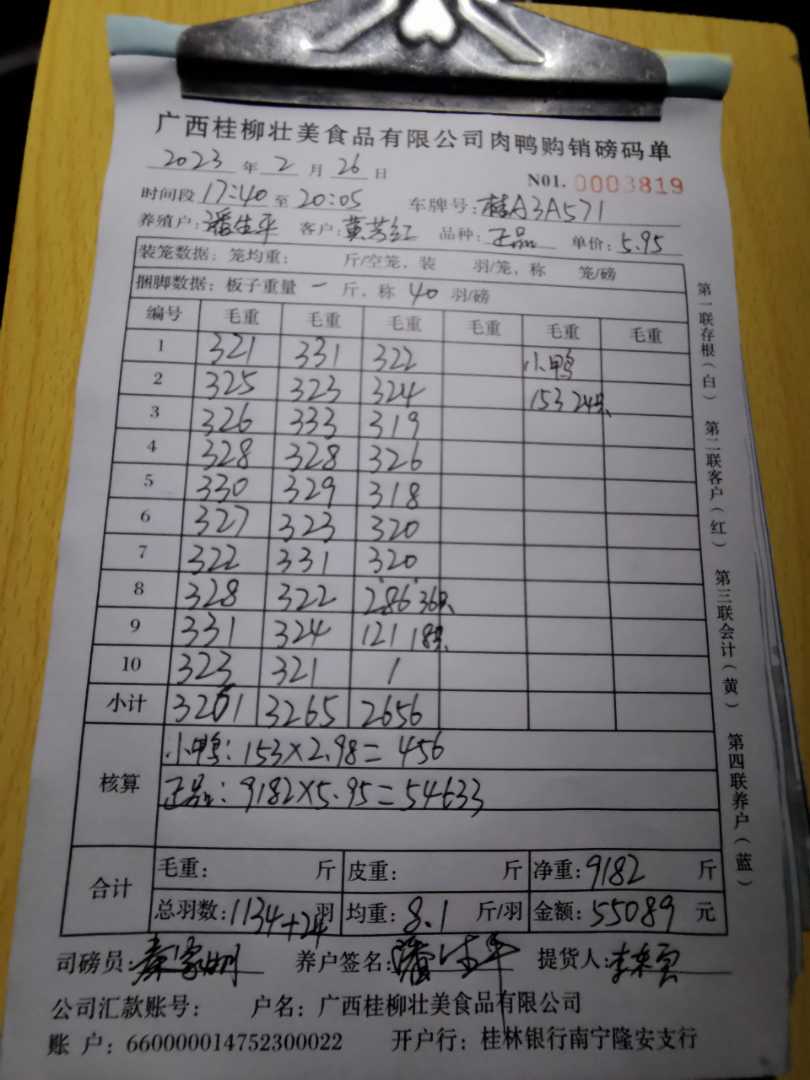 广西桂柳壮美食品有限公司肉鸭购销磅码单
2023 年 2 月 26 日 N01. 0003819
时间段 17:40 至 20:05 车牌号: 桂A3A571
养殖户: 潘生平 客户: 黄芳红 品种: 正品 单价: 5.95
装笼数据: 笼均重: 斤/空笼, 装 羽/笼, 称 笼/磅
捆脚数据: 板子重量 一 斤, 称 40 羽/磅
编号 毛重 毛重 毛重 毛重 毛重 毛重
1 321 331 322 小鸭
2 325 323 324 153 24只
3 326 333 319
4 328 328 326
5 330 329 318
6 327 323 320
7 322 331 320
8 328 322 286 36只
9 331 324 121 18只
10 323 321 1
小计 3261 3265 2656
核算
小鸭: 153×2.98=456
正品: 9182×5.95=54633
合计
毛重: 斤 皮重: 斤 净重: 9182 斤
总羽数: 1134+24 羽 均重: 8.1 斤/羽 金额: 55089 元
司磅员: 养户签名: 潘生平 提货人:
公司汇款账号: 户名: 广西桂柳壮美食品有限公司
账 户: 660000014752300022 开户行: 桂林银行南宁隆安支行
第一联存根(白) 第二联客户(红) 第三联会计(黄) 第四联养户(蓝)